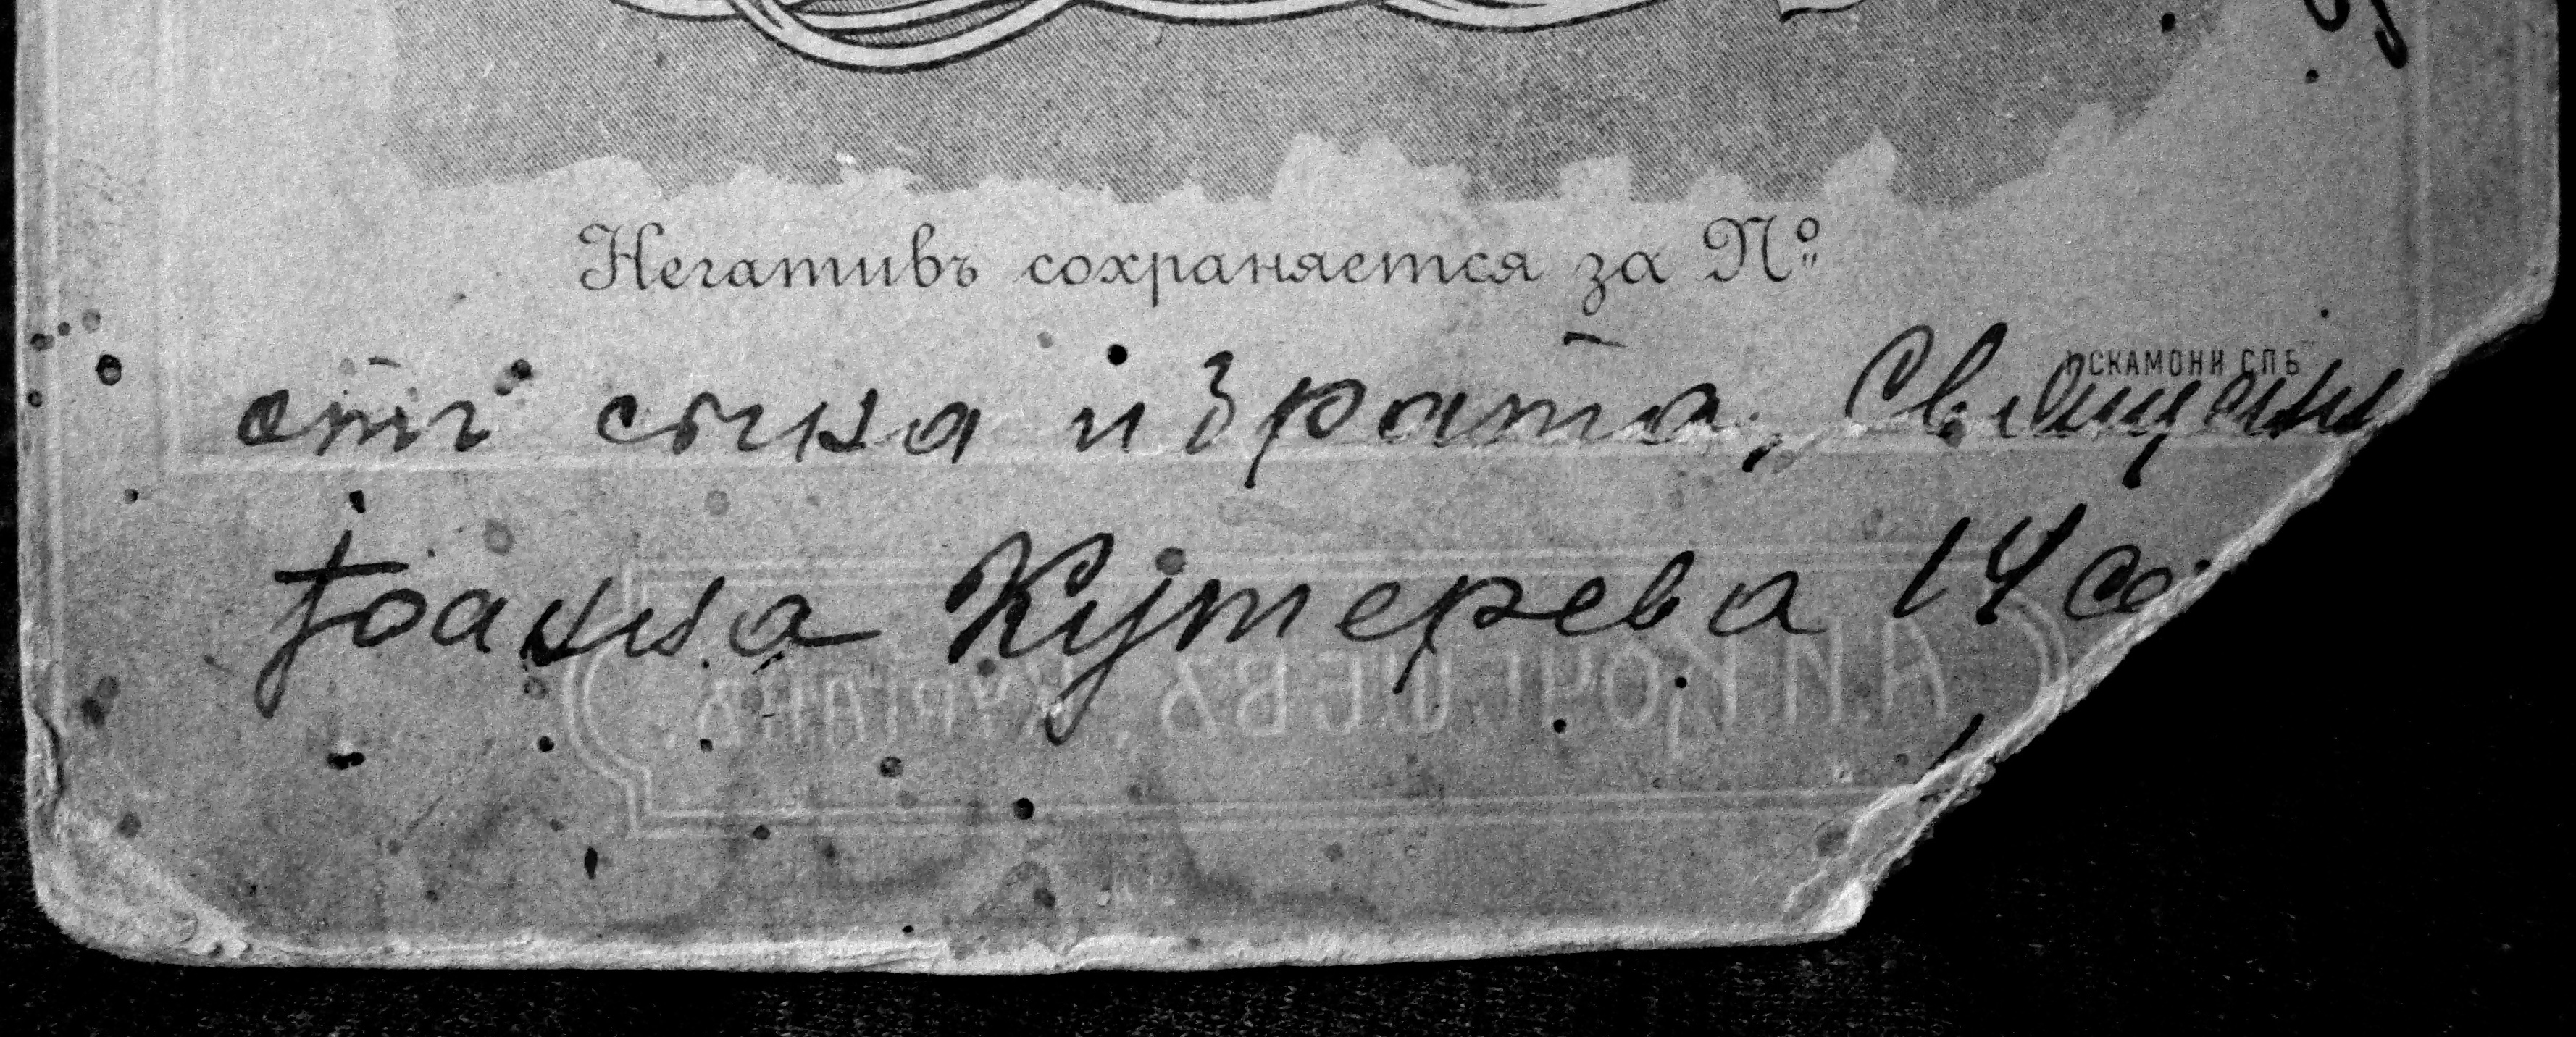 Негативъ сохраняется за №
СКАМОНИ СПБ
отъ сына и брата, Священн
Іоанна Кутерева 14 се
А.И. КОЧЕШЕВЪ, КУРГАНЪ.